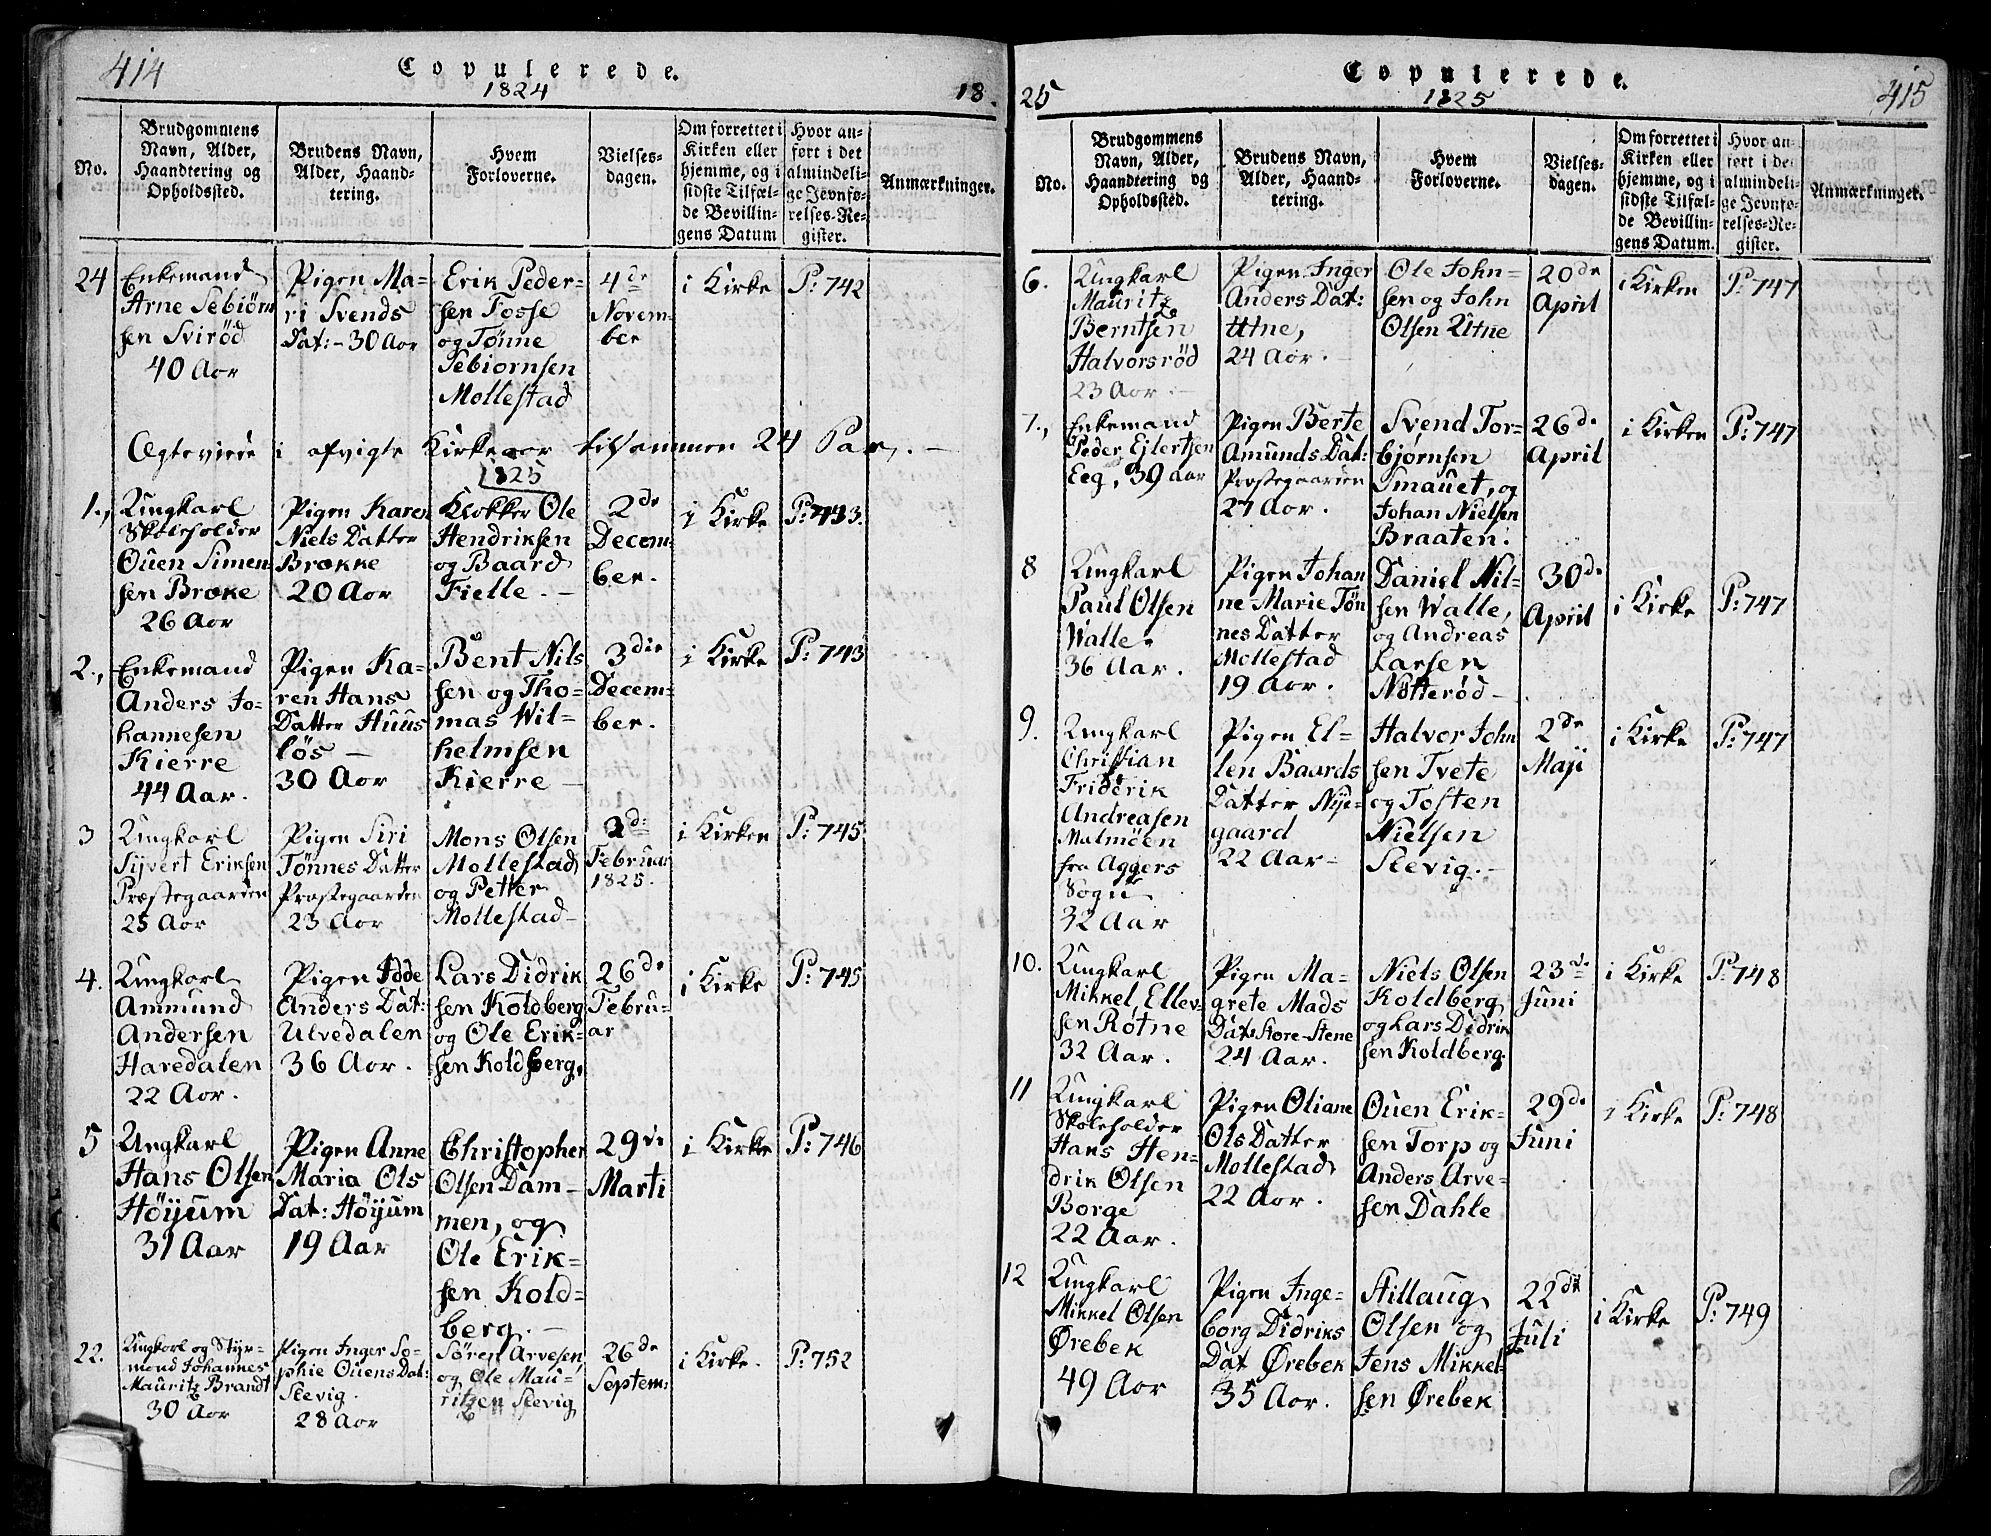 414
Copulerede.
1824
18.
No.
Brudgommens
Navn, Alder,
Haandtering og
Opholdssted.
Brudens Navn,
Alder, Haand-
tering.
Hvem
Forloverne.
Vielses-
dagen.
Om forrettet i
Kirken eller
hjemme, og i
sidste Tilfæl-
de Bevillin-
gens Datum
Hvor an-
ført i det
almindeli-
ge Jevnfø-
relses-Re-
gister.
Anmærkninger.
24
Enkemand
Arne Tebiörn
sen Sviröd
40 Aar
Pigen Ma-
ri Svends
Dat:- 30 Aar
Erik Peder-
sen Fosse
og Tønne
Tebiornsen
Mollestad
4de
Novem-
ber
i Kirke
P: 742
Ægteviede i afvigte Kirkeaar tilsammen 24 Par. -
1825
1.,
Ungkarl
Skoleholder
Ouen Simen
sen Broke
26 Aar
Pigen Karen
Niels Datter
Brokke
20 Aar
Klokker Ole
Hendriksen
og Baard
Fielle. -
2de
Decem-
ber.
i Kirke
P: 743.
2.,
Enkemand
Anders Jo-
hannesen
Kierre
44 Aar.
Pigen Ka-
ren Hans
Datter Huus
lös -
30 Aar
Bent Nils
sen og Tho-
mas Wil-
helmsen
Kierre -
3die
Decem-
ber.
i Kirke
P: 743
3
Ungkarl
Sijvert Eriksen
Præstegaarden
25 Aar
Pigen Siri
Tønnes Datter
Præstegaarden
23 Aar
Mons Olsen
Mollestad
og Petter
Mollestad-
2d:
Februar
1825.
i Kirken
P: 745
4.
Ungkarl
Anmund
Andersen
Haredalen
22 Aar.
Pigen Idde
Anders Dat:
Ulvedalen
36 Aar.
Lars Didrik
sen Koldberg
og Ole Erik-
sen Koldberg,
26de
Febru-
ar
i Kirke
P: 745
5
Ungkarl
Hans Olsen
Höijum
31 Aar
Pigen Anne
Maria Ols
Dat: Höijum
19 Aar
Christopher
Olsen Dam-
men, og
Ole Erik-
sen Kold-
berg. -
29de
Marti
i Kirke
P: 746
22.
Ungkarl og Styr-
mand Johannes
Mauritz Brandt
30 Aar
Pigen Inger So-
phie Ouens Dat:
Seevig.
28 Aar
Søren Arvesen
og Ole Mau-
ritzen Seevig
26de
Septem:
i Kirke.
P: 752
25
Copulerede.
1825
415
No.
Brudgommens
Navn, Alder,
Haandtering og
Opholdssted.
Brudens Navn,
Alder, Haand-
tering.
Hvem
Forloverne.
Vielses-
dagen.
Om forrettet i
Kirken eller
hjemme, og i
sidste Tilfæl-
de Bevillin-
gens Datum.
Hvor an-
ført i det
almindeli-
ge Jevnfø-
relses-Re-
gister.
Anmærkninger.
6.
Ungkarl
Mauritz
Berntsen
Halvorsröd
23 Aar.-
Pigen Inger
Anders Dat:
Utne,
24 Aar. -
Ole John-
sen og John
Olsen Utne
20de
April
i Kirken
P: 747
7.,
Enkemand
Peder Ejlertsen
Eeg, 39 Aar
Pigen Berte
Amunds Dat:
Præstegaarden
27 Aar.
Svend Tor-
bjørnsen
Smauet, og
Johan Nielsen
Braaten.
26de
April
i Kirken
P: 747
8
Ungkarl
Paul Olsen
Walle.
36 Aar.
Pigen Johan
ne Marie Tön
nes Datter
Mollestad
19 Aar.
Daniel Nil-
sen Walle,
og Andreas
Larsen
Nötteröd -
30de
April
i Kirke
P: 747
9.
Ungkarl
Christian
Friderik
Andreasen
Malmöen
fra Aggers
Sogn
32 Aar
Pigen El-
len Baards
Datter Nije-
gaard
22 Aar-
Halvor John
sen Tvete
og Tosten
Nielsen
Seevig. -
2de
Maji
i Kirke
P: 747
10.
Ungkarl
Mikkel Ellev-
sen Rötne
32 Aar.
Pigen Ma-
grete Mads
Dat: Store-Stene
24 Aar.
Niels Olsen
Koldberg,
og Lars Didrik
sen Koldberg.
23de
Juni
i Kirke
P: 748
11
Ungkarl
Skoleholder
Hans Hen-
drik Olsen
Borge
22 Aar.
Pigen Oliane
Ols Datter
Mollestad
22 Aar.
Ouen Erik-
sen Torp og
Anders Arve-
sen Dahle
29de
Juni
i Kirke
P: 748
12
Ungkarl
Mikkel Olsen
Ørebek
49 Aar
Pigen Inge-
borg Didriks
Dat Ørebek
35 Aar.
Stillaug
Olsen og
Jens Mikkel-
sen Ørebek
22de
Juli
i Kirke
P: 749